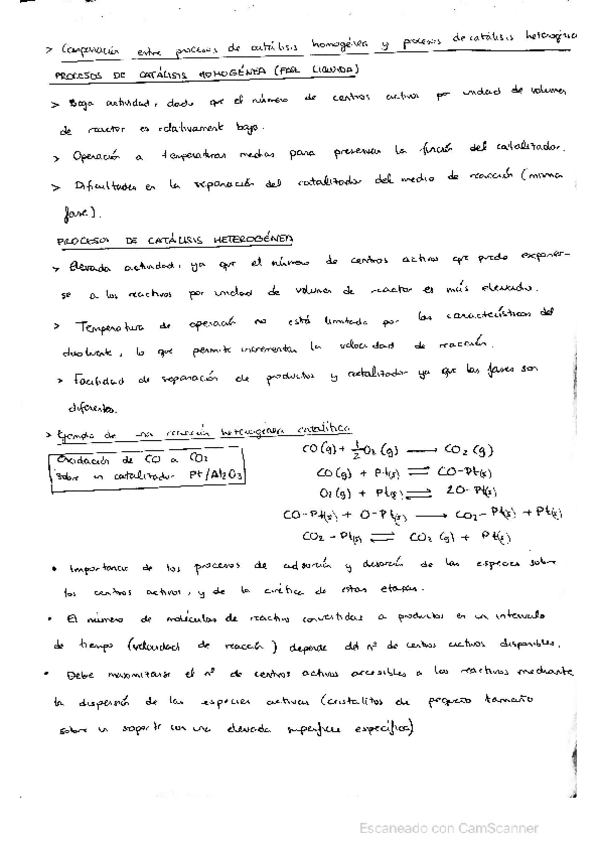 > Comparación entre procesos de catálisis homogénea y procesos de catálisis heterogénea
PROCESOS DE CATÁLISIS HOMOGÉNEA (FASE LIQUIDA)
> Baja actividad, dado que el número de centros activos por unidad de volumen
de reactor es relativamente bajo.
> Operación a temperaturas medias para preservar la función del catalizador.
> Dificultades en la separación del catalizador del medio de reacción (misma
fase).
PROCESOS DE CATÁLISIS HETEROGÉNEA
> Elevada actividad, ya que el número de centros activos que puede exponer-
se a los reactivos por unidad de volumen de reactor es más elevado.
> Temperatura de operación no está limitada por las características del
disolvente, lo que permite incrementar la velocidad de reacción.
> Facilidad de separación de productos y catalizador ya que las fases son
diferentes.
> Ejemplo de una reacción heterogénea catalítica
Oxidación de CO a CO2
sobre un catalizador Pt/Al2O3
CO(g) + 1/2 O2 (g) → CO2 (g)
CO(g) + Pt(s) ⇌ CO-Pt(s)
O2(g) + Pt(s) ⇌ 2O-Pt(s)
CO-Pt(s) + O-Pt(s) → CO2-Pt(s) + Pt(s)
CO2-Pt(s) ⇌ CO2 (g) + Pt(s)
• Importancia de los procesos de adsorción y desorción de las especies sobre
los centros activos, y de la cinética de estas etapas.
• El número de moléculas de reactivo convertidas a productos en un intervalo
de tiempo (velocidad de reacción) depende del nº de centros activos disponibles.
• Debe maximizarse el nº de centros activos accesibles a los reactivos mediante
la dispersión de las especies activas (cristalitos de pequeño tamaño
sobre un soporte con una elevada superficie específica)
Escaneado con CamScanner